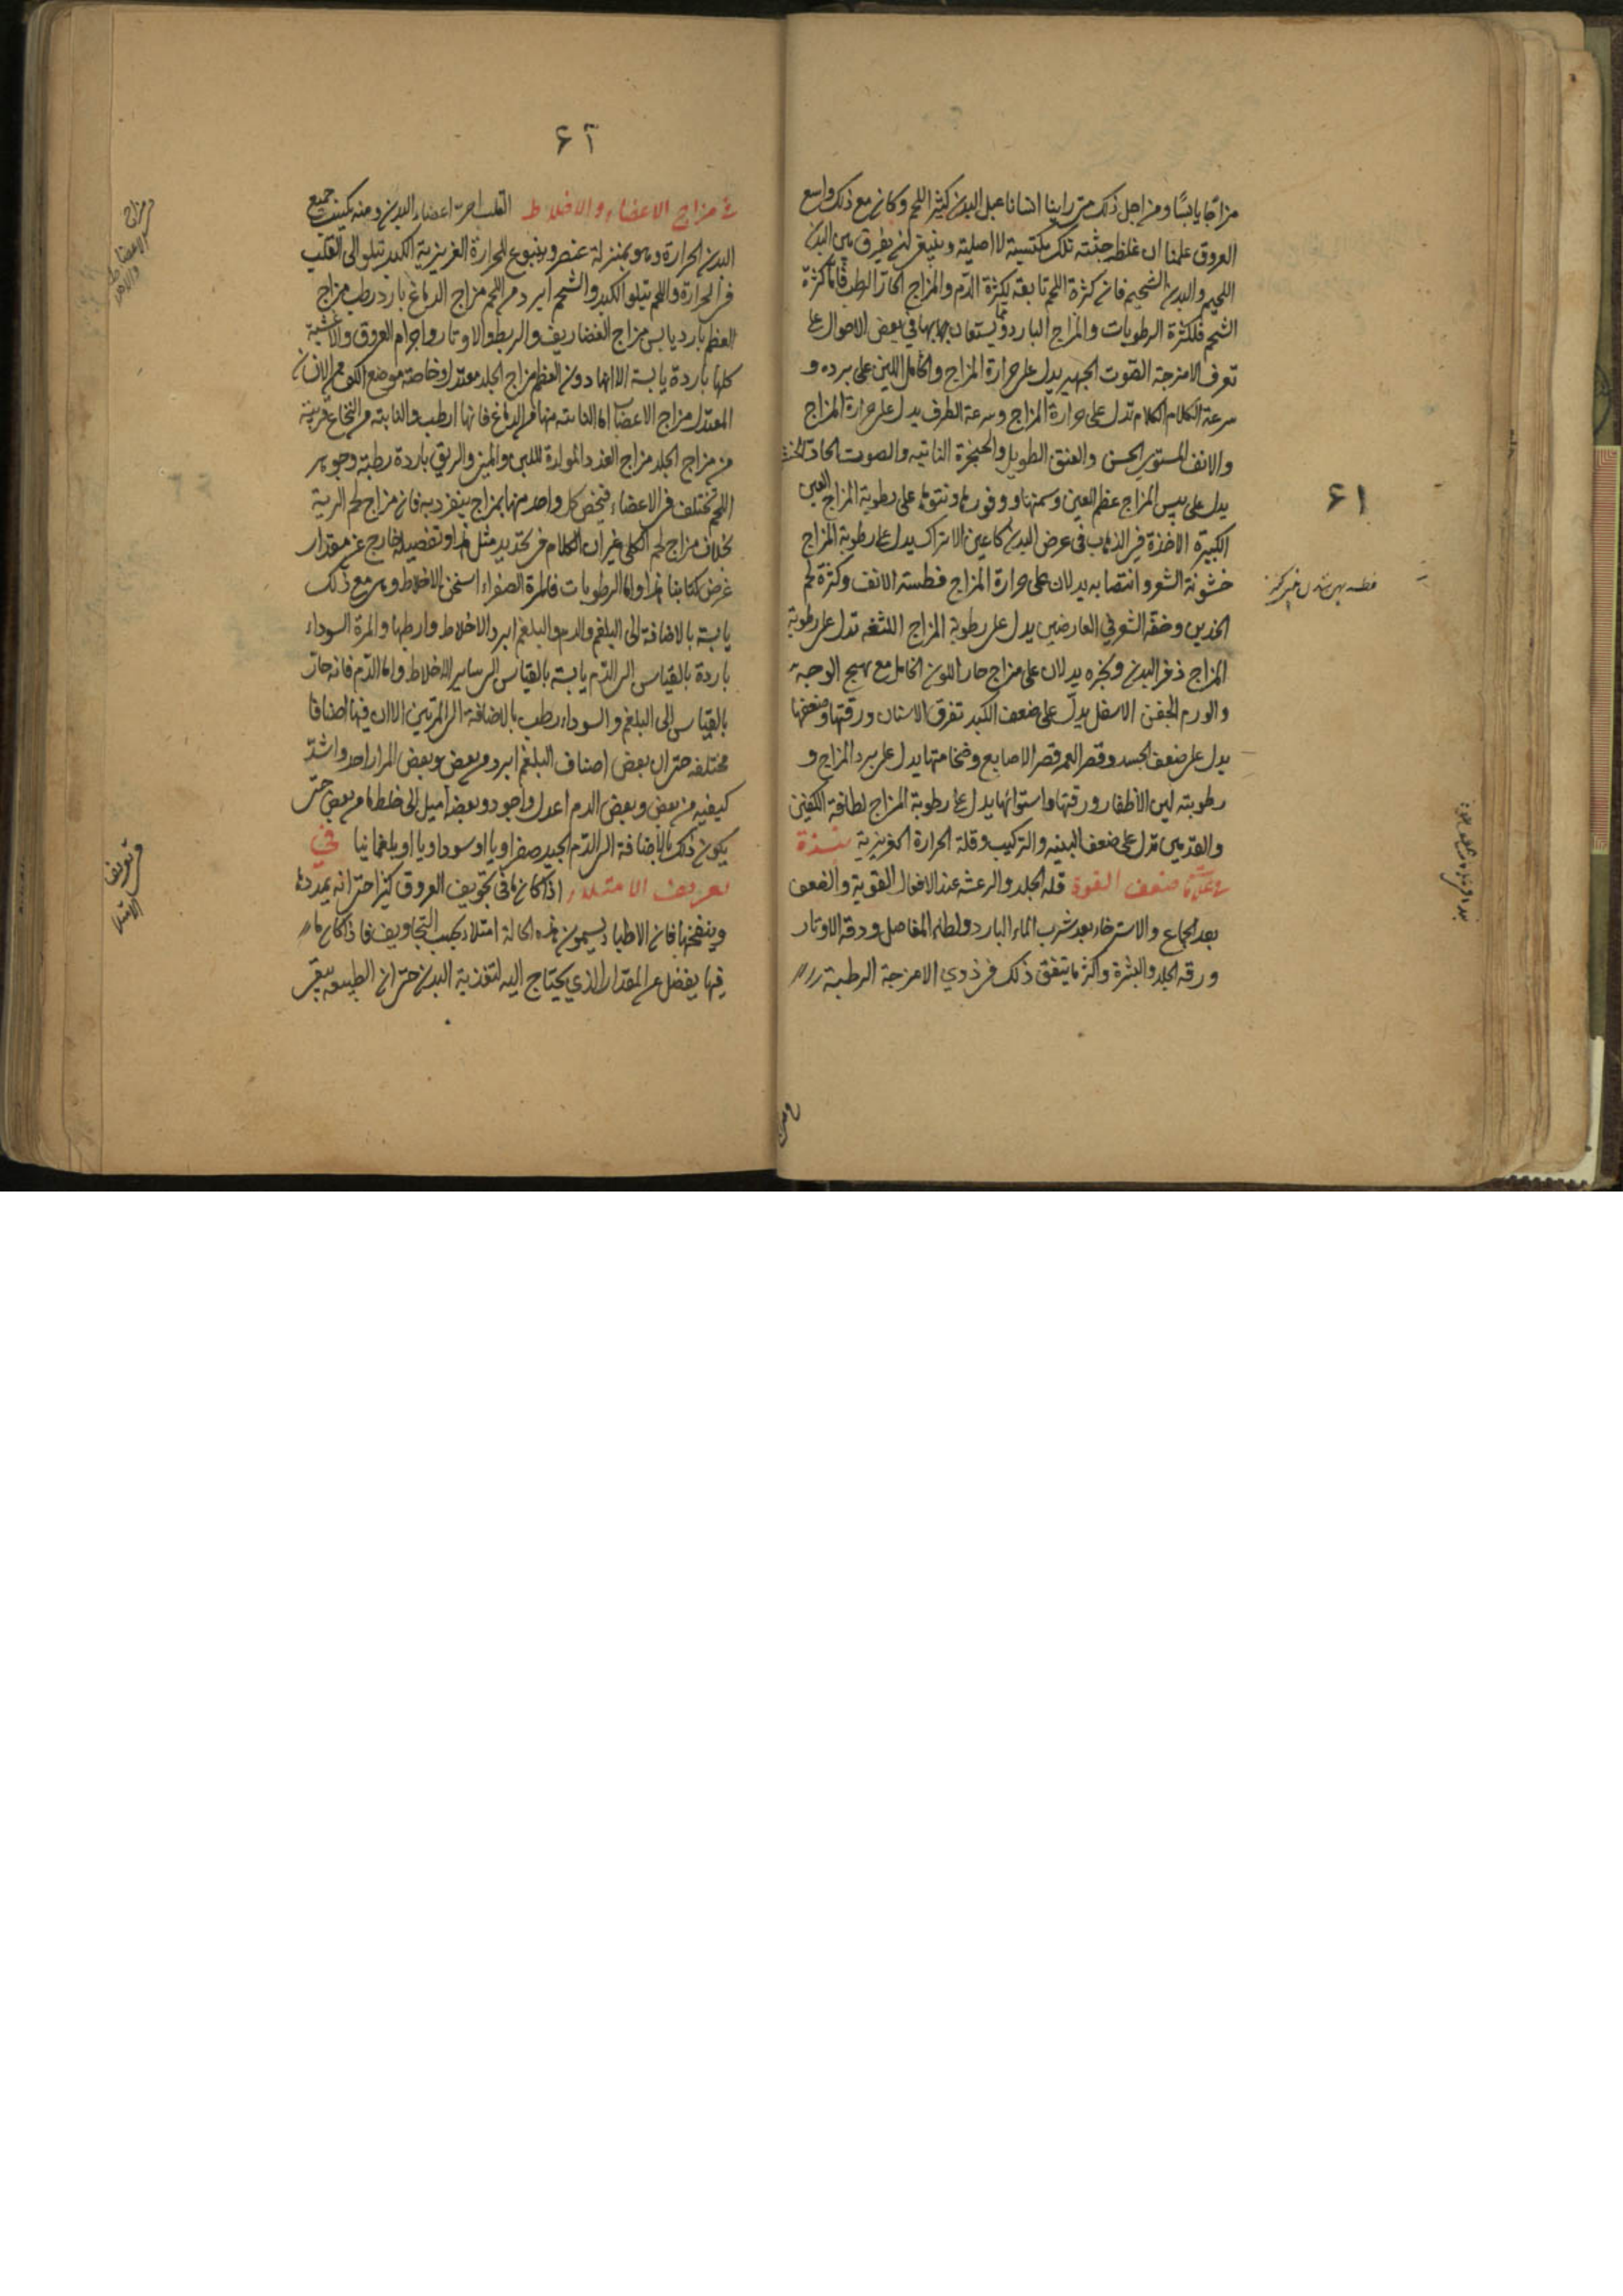 ٦١
مزاجا يابسا ومن اجل ذلك متى راينا انسانا عبل البدن كثير اللحم وكان مع ذلك واسع
العروق علمنا ان غلظ جثته تلك مكتسبة لا اصلية وينبغى ان يفرق بين البدن
اللحيم والبدن الشحيم فان كثرة اللحم تابعة لكثرة الدم والمزاج الحار الرطب فاما كثرة
الشحم فلكثرة الرطوبات والمزاج البارد ومما يستعان بها فى بعض الاحوال على
تعرف الامزجة الصوت الجهير يدل على حرارة المزاج والكامل اللين على برده و
سرعة الكلام تدل على حرارة المزاج وسرعة الطرف يدل على حرارة المزاج
والانف المستوى الحسن والعنق الطويل والحنجرة الناتيه والصوت الحاد
يدل على يبس المزاج عظم العين وسمنها ووفورها ونتوها على رطوبة المزاج العين
الكبيرة الاخذة فى الذهاب فى عرض البدن كاعين الاتراك يدل على رطوبة المزاج
خشونة الشعر وانتصابه يدلان على حرارة المزاج فطسة الانف وكثرة لحم
الخدين وخفة الشعر فى العارضين يدل على رطوبة المزاج اللثغه تدل على رطوبة
المزاج ذفر البدن وبخره يدلان على مزاج حار اللون الحامل مع تهيج الوجه
والورم الجفن الاسفل يدل على ضعف الكبد تفرق الاسنان ورقتها وضعفها
يدل على ضعف الجسد وقصر العمر قصر الاصابع وضخامتها يدل على برد المزاج و
رطوبته لين الاظفار ورقتها واستوائها يدل على رطوبة المزاج لطافة الكفين
والقدمين تدل على ضعف البنيه والتركيب وقلة الحرارة الغريزية نبذة
فى علامات ضعف القوة قلة الجلد والرعشه عند الافعال القوية والضعف
بعد الجماع والاسترخاء بعد شرب الماء البارد ولطافة المفاصل ودقة الاوتار
ورقه الجلد والبشرة واكثر ما يتفق ذلك فى ذوي الامزجة الرطبة
٦٢
فى مزاج الاعضاء والاخلاط القلب احر اعضاء البدن ومنه يكتسب جميع
البدن الحرارة وهو بمنزلة عنصر وينبوع للحرارة الغريزية الكبد تتلو الى القلب
فى الحرارة واللحم يتلو الكبد والشحم ابرد من اللحم مزاج الدماغ بارد رطب مزاج
العظم بارد يابس مزاج الغضاريف والربط والاوتار واجرام العروق والاغشية
كلها باردة يابسة الا انها دون العظم مزاج الجلد معتدل وخاصة موضع الكف من الانسان
المعتدل مزاج الاعصاب اما النابته منها من الدماغ فانها ارطب والنابته من النخاع قريبة
من مزاج الجلد مزاج الغدد المولدة للبن والمنى والريق باردة رطبة وجوهر
اللحم تختلف فى الاعضاء فيخص كل واحد منها بمزاج ينفرد به فان مزاج لحم الرية
بخلاف مزاج لحم الكلى غير ان الكلام فى تحديد مثل هذا وتفصيله خارج عن مقدار
غرض كتابنا هذا واما الرطوبات فالمرة الصفراء اسخن الاخلاط وهى مع ذلك
يابسة بالاضافة الى البلغم والدم والبلغم ابرد الاخلاط وارطبها والمرة السوداء
باردة بالقياس الى الدم يابسة بالقياس الى ساير الاخلاط واما الدم فانه حار
بالقياس الى البلغم والسوداء رطب بالاضافة الى المرتين الا ان فيها اصنافا
مختلفه حتى ان بعض اصناف البلغم ابرد من بعض وبعض المرار احد واشد
كيفيه من بعض وبعض الدم اعدل واجود وبعضه اميل الى خلط ما من بعض حتى
يكون ذلك بالاضافة الى الدم الجيد صفراويا او سوداويا او بلغمانيا فى
تعريف الامتلاء اذا كان ما فى تجويف العروق كثيرا حتى انه يمددها
وينفخها فان الاطباء يسمون هذه الحالة امتلاء بحسب التجاويف فاذا كان ما
فيها يفضل عن المقدار الذي يحتاج اليه لتغذية البدن حتى ان الطبيعه
فى مزاج
الاعضاء
والاخلاط
فى تعريف
الامتلاء